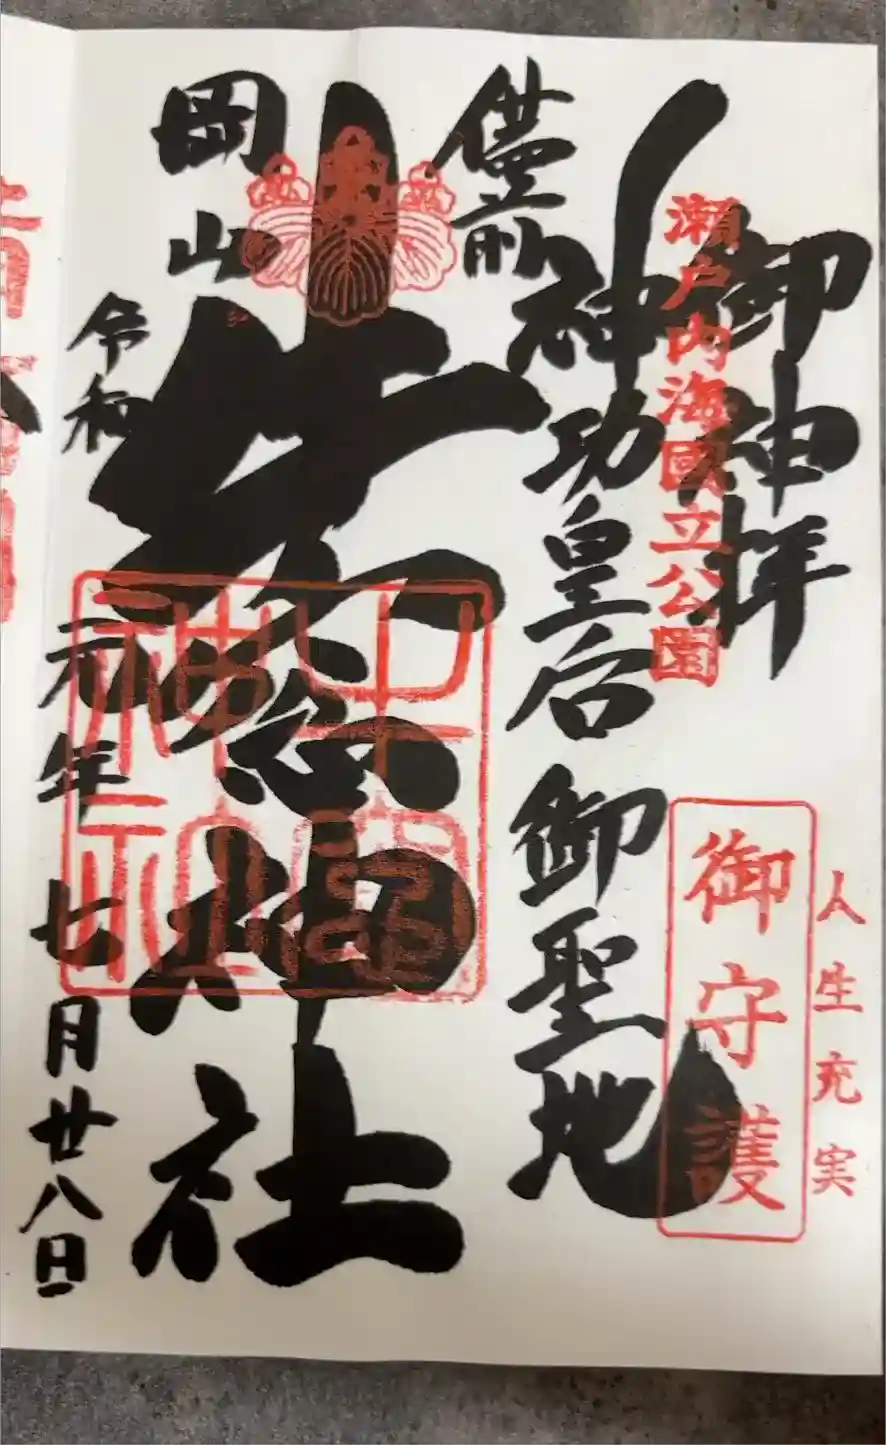 人生充実
御神拝
瀬戸内海國立公園
御守護
備前
神功皇后御聖地
牛窓神社
牛窓神社
岡山
令和元年七月廿八日